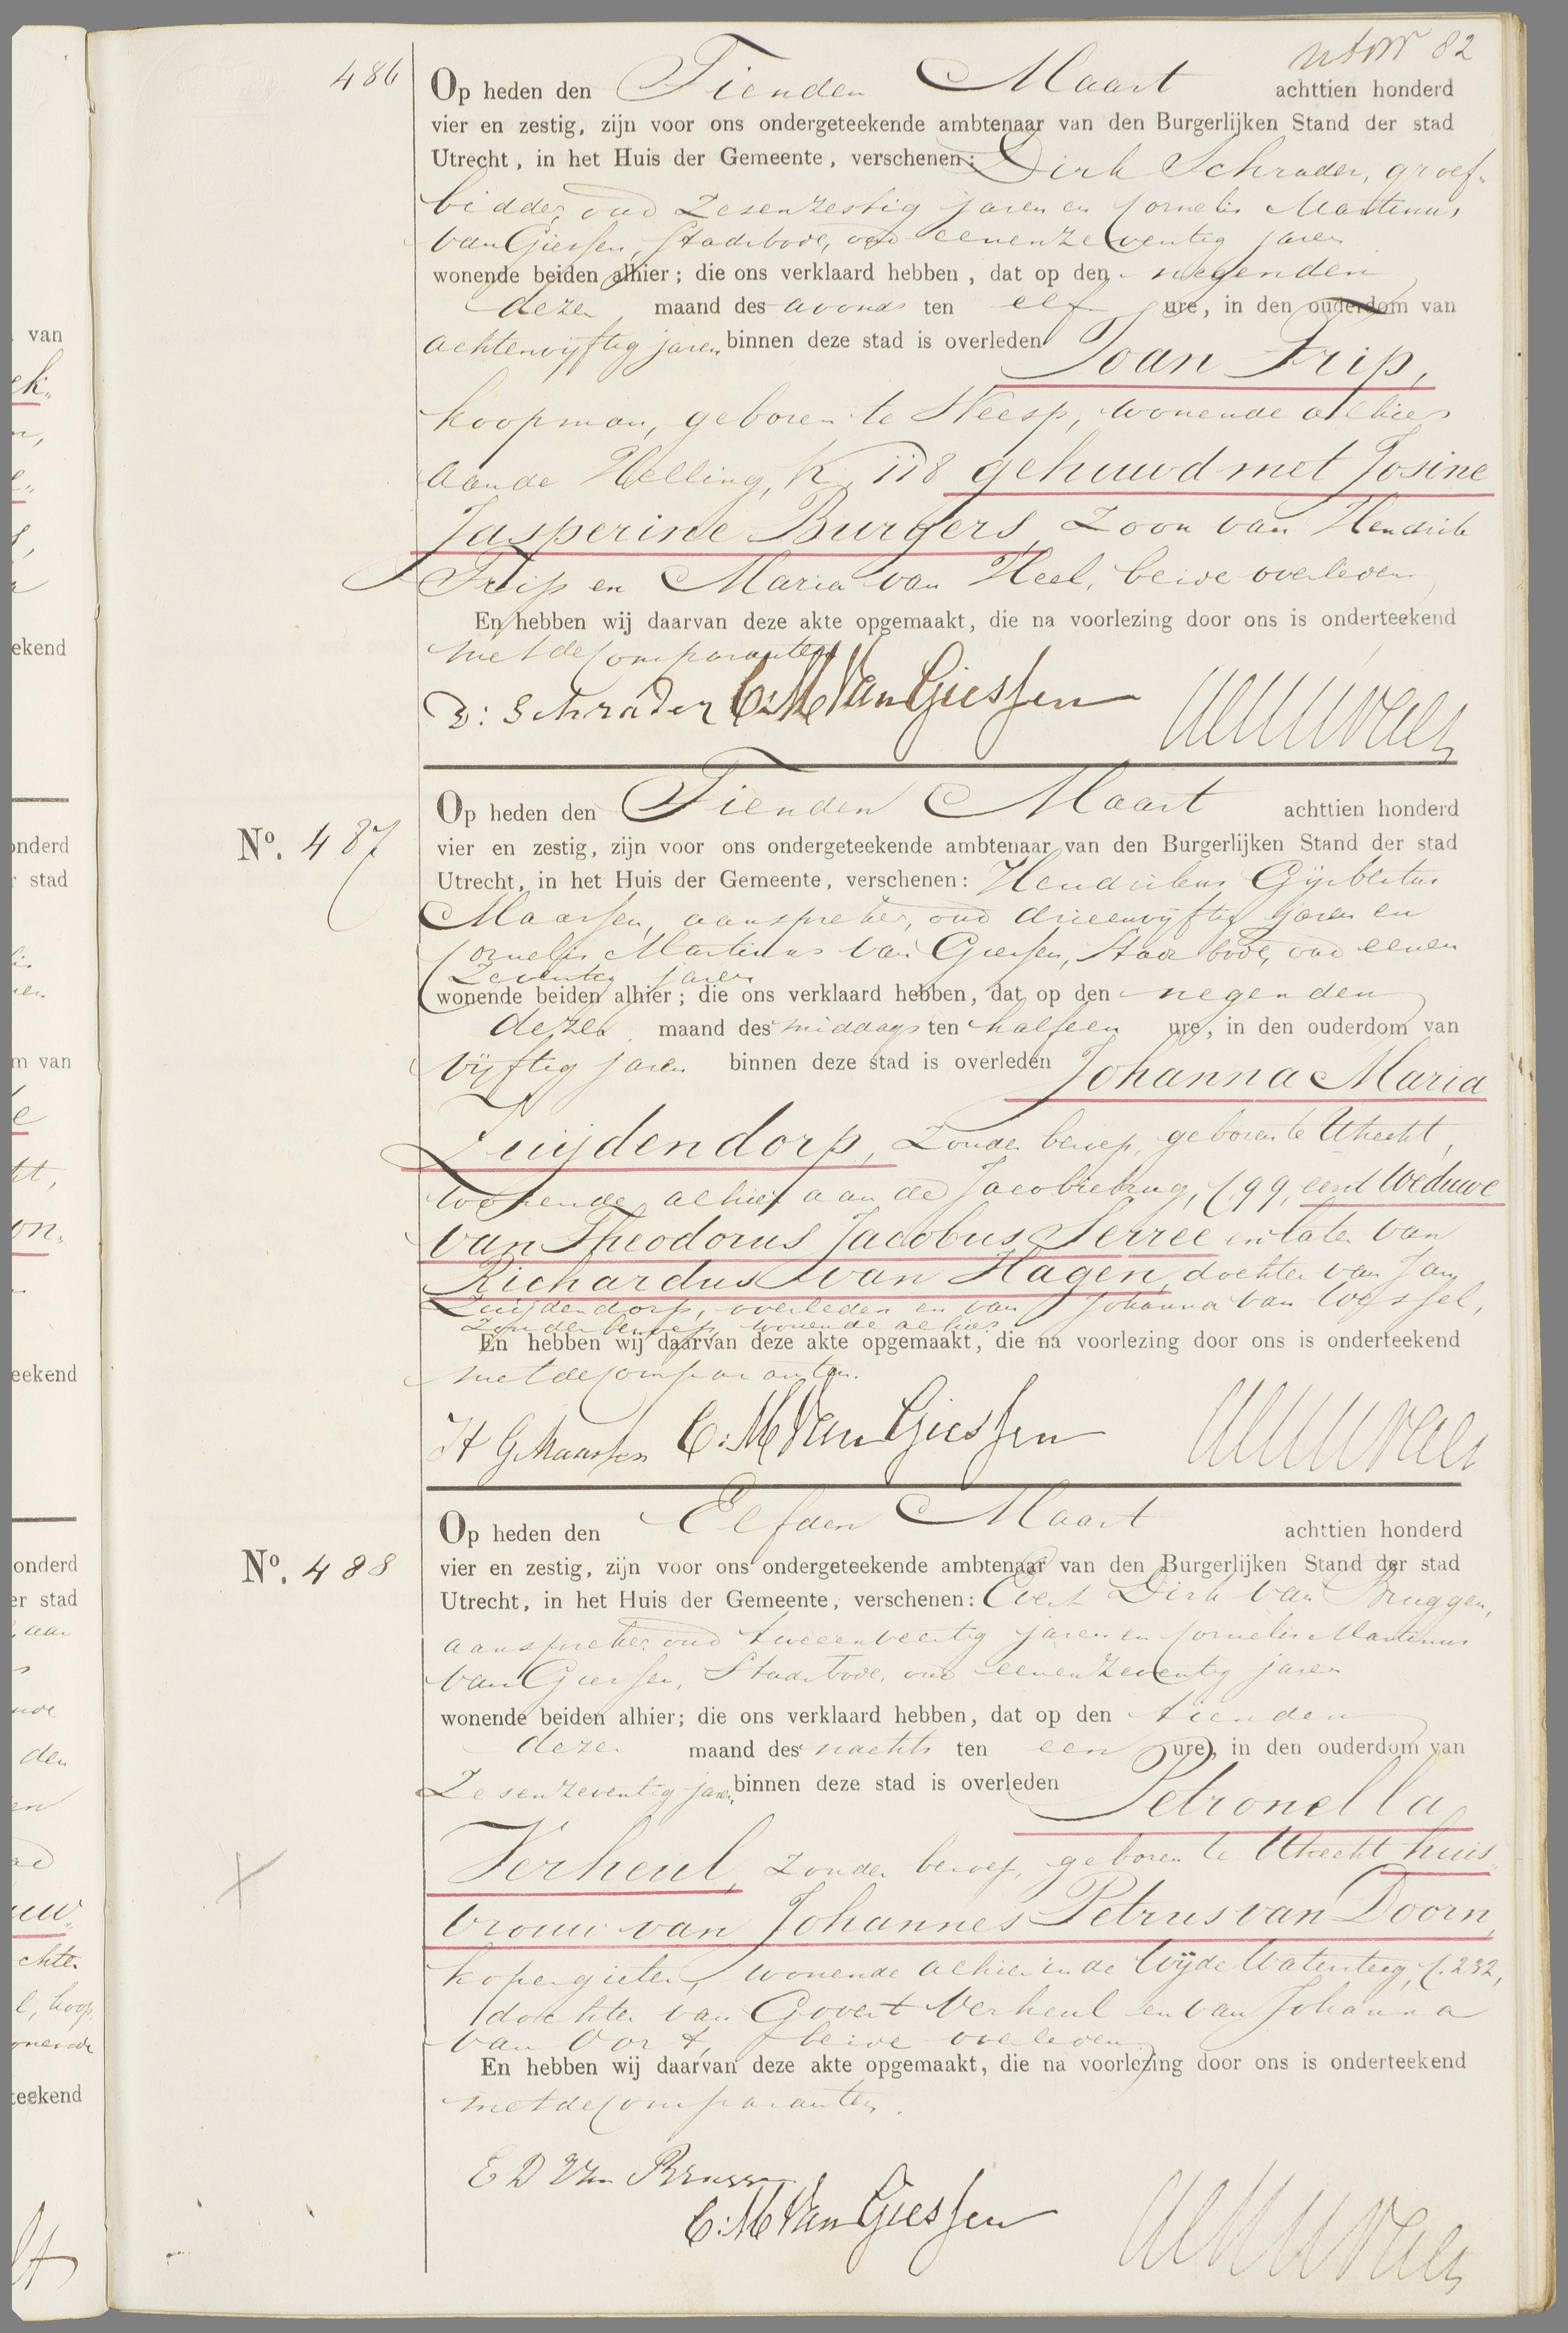 82
486
Op heden den Tienden Maart achttien honderd
vier en zestig, zijn voor ons ondergeteekende ambtenaar van den Burgerlijken Stand der stad
Utrecht, in het Huis der Gemeente, verschenen: Dirk Schrader, groef-
bidder, oud Zesenzestig jaren en Cornelis Martinus
van Giessen, Stadsbode, oud eenenzeventig jaren
wonende beiden alhier; die ons verklaard hebben, dat op den negenden
dezer maand des avonds ten elf ure, in den ouderdom van
achtenvijftig jaren binnen deze stad is overleden Joan Frip,
koopman, geboren te Weesp, wonende alhier
aan de Helling, K. 118 gehuwd met Josine
Jasperine Burgers, Zoon van Hendrik
Frip en Maria van Heel, beide overleden
En hebben wij daarvan deze akte opgemaakt, die na voorlezing door ons is onderteekend
met de Comparanten
D: Schrader C: M Van Giessen
No. 487
Op heden den Tienden Maart achttien honderd
vier en zestig, zijn voor ons ondergeteekende ambtenaar van den Burgerlijken Stand der stad
Utrecht, in het Huis der Gemeente, verschenen: Hendrikus Gijsbertus
Maarssen, aanspreker, oud drieenvijftig jaren en
Cornelis Martinus van Giessen, Stadsbode, oud eenen
Zeventig jaren
wonende beiden alhier; die ons verklaard hebben, dat op den negenden
dezer maand des middags ten half een ure, in den ouderdom van
vijftig jaren binnen deze stad is overleden Johanna Maria
Zuijdendorp, Zonder beroep, geboren te Utrecht,
wonende alhier aan de Jacobiebrug, C. 99, eerst Weduwe
van Theodorus Jacobus Serree en later van
Richardus van Hagen, dochter van Jan
Zuijdendorp, overleden en van Johanna van Wessel,
Zonder beroep, wonende alhier
En hebben wij daarvan deze akte opgemaakt, die na voorlezing door ons is onderteekend
met de Comparanten.
H G Maarssen C: M Van Giessen
No. 488
Op heden den Elfden Maart achttien honderd
vier en zestig, zijn voor ons ondergeteekende ambtenaar van den Burgerlijken Stand der stad
Utrecht, in het Huis der Gemeente, verschenen: Evert Dirk van Bruggen,
aanspreker oud tweeenveertig jaren en Cornelis Martinus
van Giessen, Stadsbode, oud eenenzeventig jaren
wonende beiden alhier; die ons verklaard hebben, dat op den tienden
dezer maand des nachts ten een ure, in den ouderdom van
Zesenzeventig jaren binnen deze stad is overleden Petronella
Verheul, Zonder beroep, geboren te Utrecht huis
vrouw van Johannes Petrus van Doorn,
kopergieter, wonende alhier in de Wijde Watersteeg, C. 232,
dochter van Govert Verheul en van Johanna
van Oort, beide overleden
En hebben wij daarvan deze akte opgemaakt, die na voorlezing door ons is onderteekend
met de Comparanten.
E D Van Bruggen
C: M Van Giessen